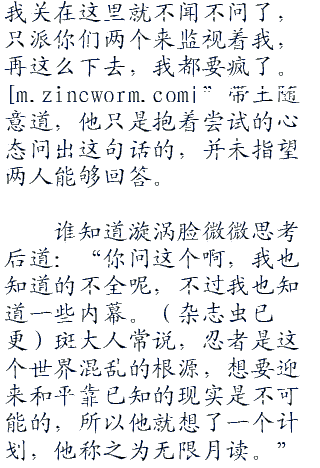 我关在这里就不闻不问了，
只派你们两个来监视着我，
再这么下去，我都要疯了。
[m.zincworm.com]”带土随
意道，他只是抱着尝试的心
态问出这句话的，并未指望
两人能够回答。
谁知道漩涡脸微微思考
后道：“你问这个啊，我也
知道的不全呢，不过我也知
道一些内幕。（杂志虫已
更）斑大人常说，忍者是这
个世界混乱的根源，想要迎
来和平靠已知的现实是不可
能的，所以他就想了一个计
划，他称之为无限月读。”